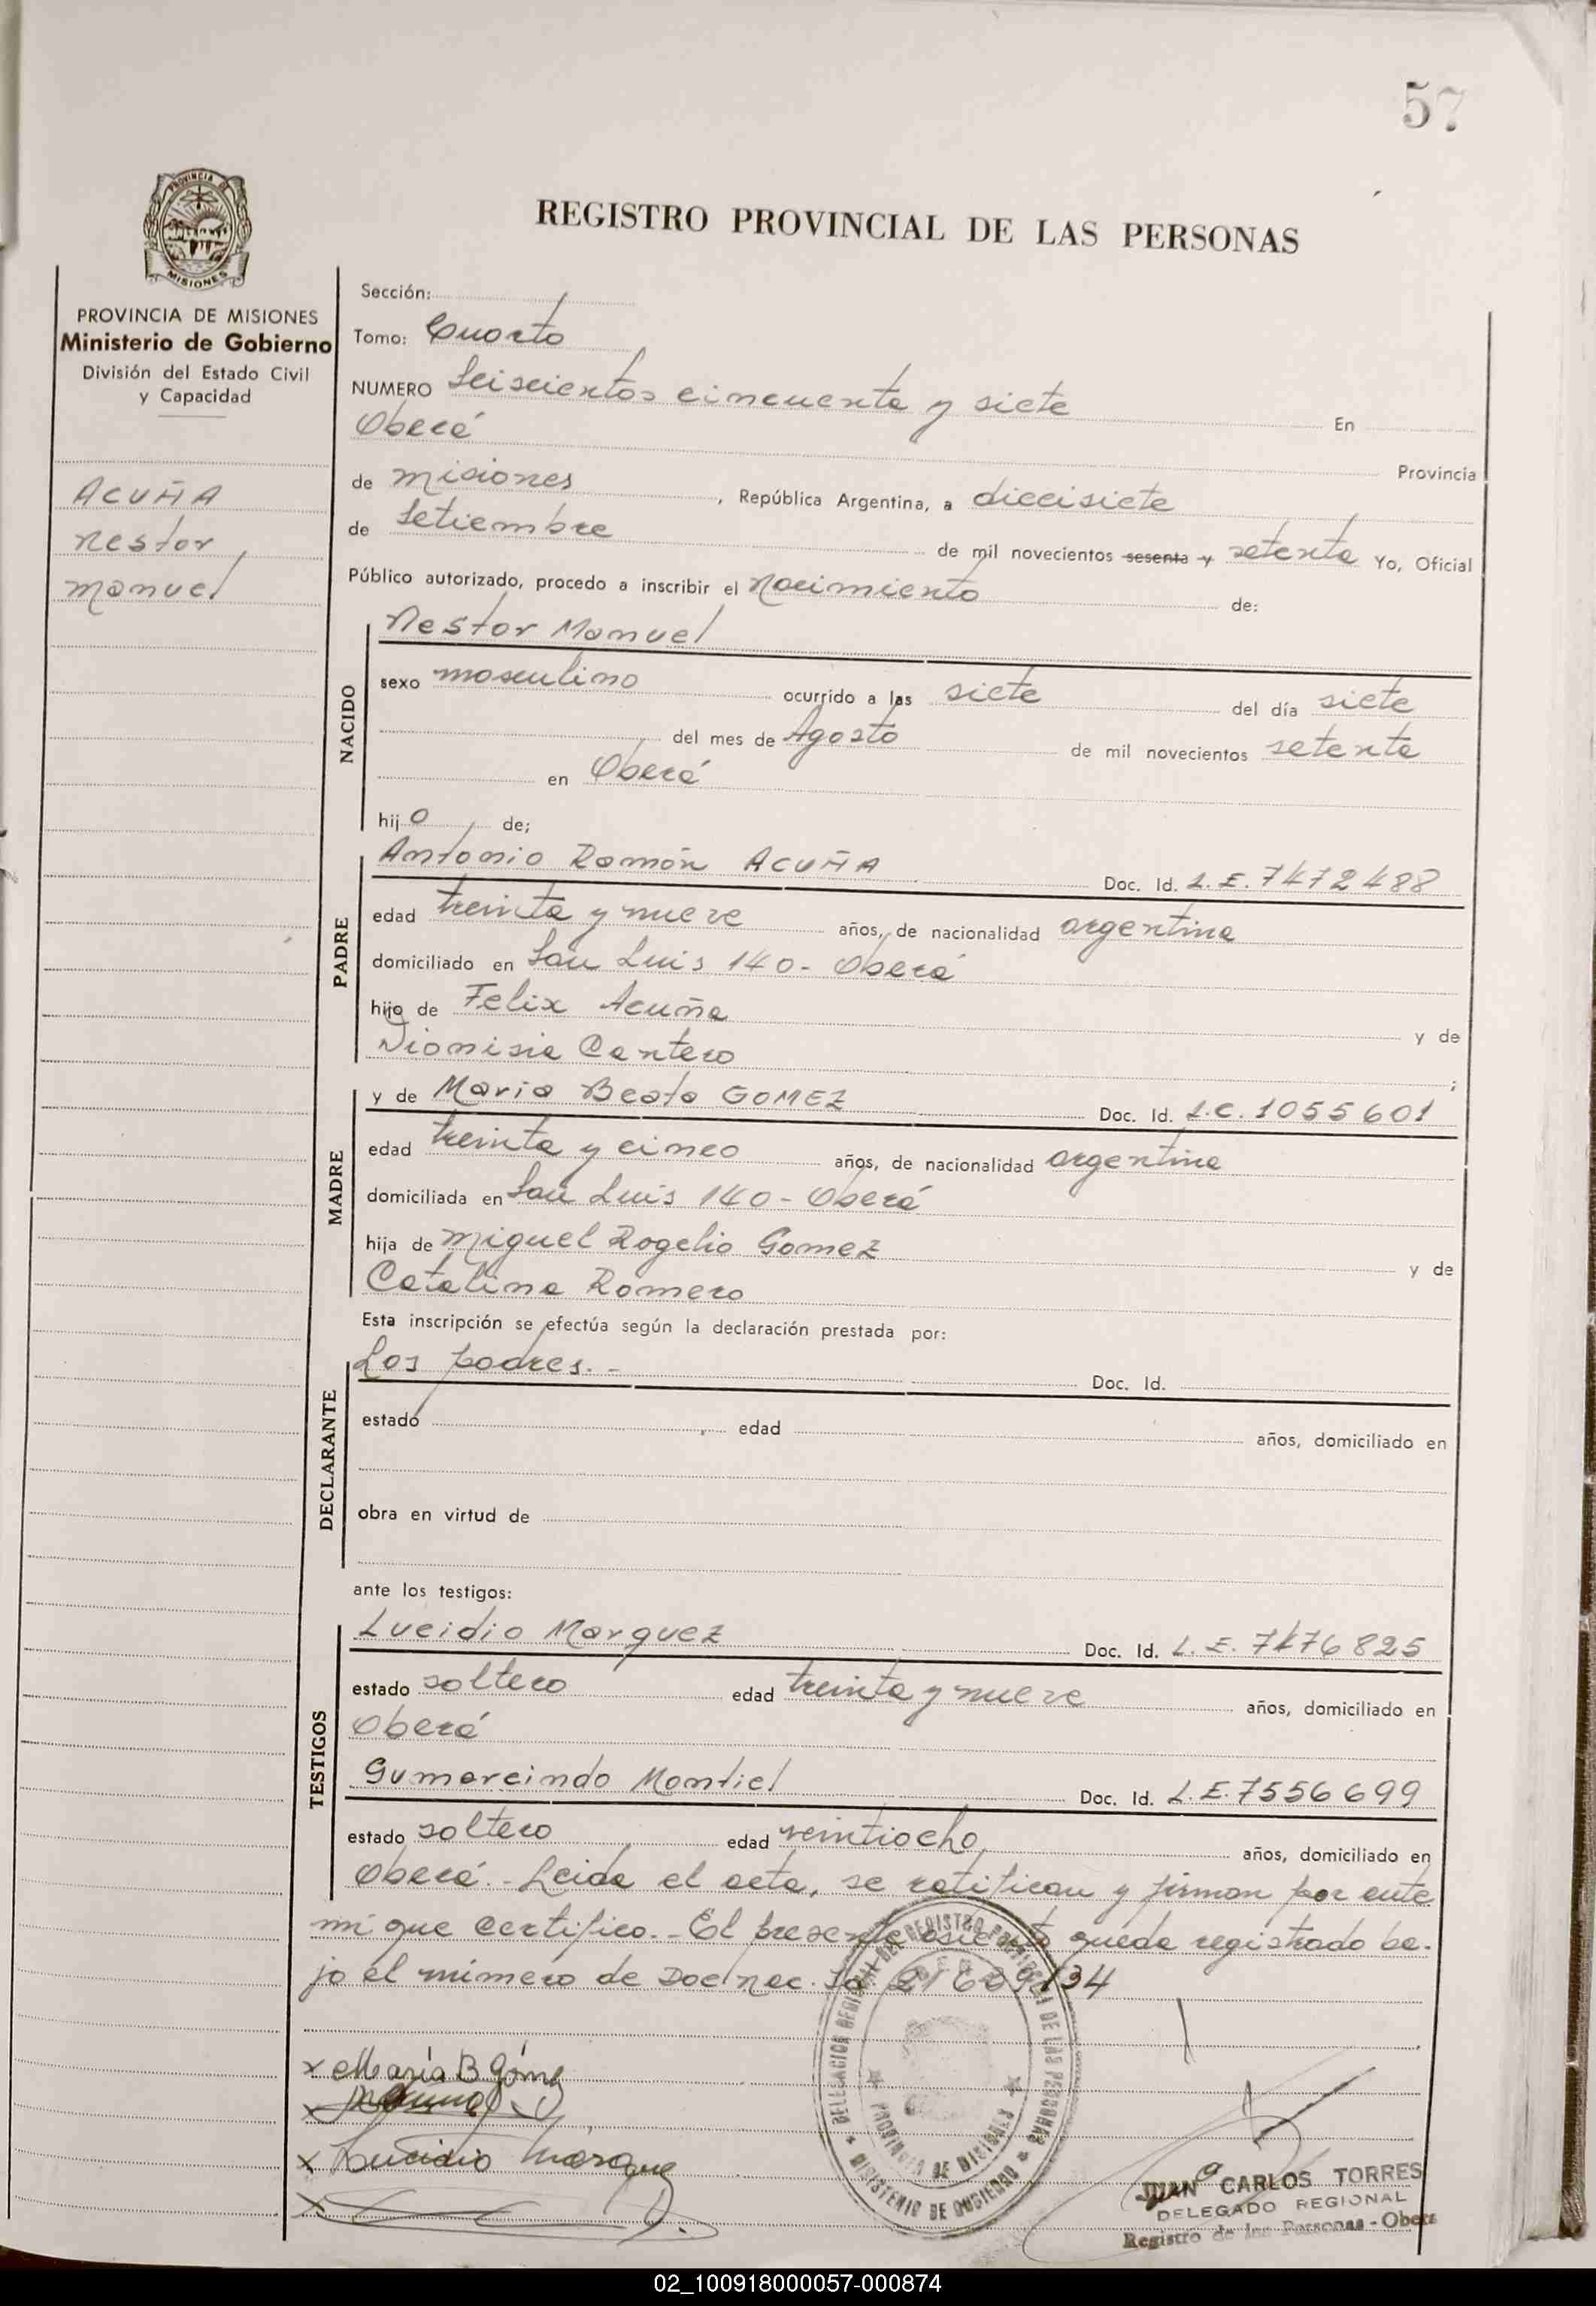 57
PROVINCIA DE
MISIONES
REGISTRO PROVINCIAL DE LAS PERSONAS
PROVINCIA DE MISIONES
Ministerio de Gobierno
División del Estado Civil
y Capacidad
ACUÑA
Nestor
Manuel
Sección:
Tomo: Cuarto
NUMERO Seiscientos cincuenta y siete En
Oberá Provincia
de Misiones, República Argentina, a diecisiete
de Setiembre de mil novecientos sesenta y setenta Yo, Oficial
Público autorizado, procedo a inscribir el Nacimiento de:
NACIDO
Nestor Manuel
sexo masculino ocurrido a las siete del día siete
del mes de Agosto de mil novecientos setenta
en Oberá
hijo de;
PADRE
Antonio Ramón ACUÑA Doc. Id. L.E. 7472488
edad treinta y nueve años, de nacionalidad argentina
domiciliado en San Luis 140- Oberá
hijo de Felix Acuña y de
Dionisia Cantero;
MADRE
y de Maria Beata GOMEZ Doc. Id. L.C. 1055601
edad treinta y cinco años, de nacionalidad argentina
domiciliada en San Luis 140- Oberá
hija de Miguel Rogelio Gomez y de
Catalina Romero
Esta inscripción se efectúa según la declaración prestada por:
DECLARANTE
Los padres.- Doc. Id.
estado edad años, domiciliado en
obra en virtud de
ante los testigos:
TESTIGOS
Lucidio Marquez Doc. Id. L.E. 7476825
estado soltero edad treinta y nueve años, domiciliado en
Oberá
Gumercindo Montiel Doc. Id. L.E. 7556699
estado soltero edad veintiocho años, domiciliado en
Oberá.- Leida el acta, se ratifican y firman por ante
mi que certifico.- El presente asiento queda registrado ba-
jo el número de Doc. nac. Id.
DELEGACION REGIONAL DEL REGISTRO PROVINCIAL DE LAS PERSONAS
PROVINCIA DE MISIONES
MINISTERIO DE GOBIERNO
x María B Gómez
x
x Lucidio Márquez
x
JUAN CARLOS TORRES
DELEGADO REGIONAL
Registro de las Personas - Oberá
02_100918000057-000874